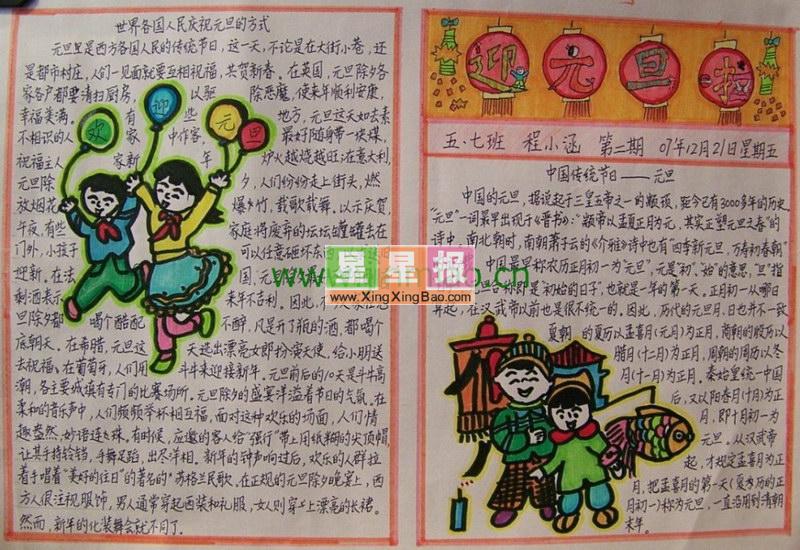 世界各国人民庆祝元旦的方式
元旦里是西方各国人民的传统节日，这一天，不论是在大街小巷，还
是都市村庄，人们一见面就要互相祝福，共贺新春。在英国，元旦除夕各
家各户都要清扫厨房，以驱除恶魔，使来年顺利安康，
幸福美满。有些地方，元旦这天如去素
不相识的人家中作客，最好随身带一块煤，
祝福主人家新年炉火越烧越旺。在意大利，
元旦除夕，人们纷纷走上街头，燃
放烟花爆竹，载歌载舞。以示庆贺，
午夜，有些家庭将废弃的坛坛罐罐去在
门外，小孩子可以任意破坏东
迎新。在法国，元
剩酒表示来年不吉利。因此，
旦除夕都喝个酩酊不醉，凡是开了瓶的酒，都喝个
底朝天。在希腊，元旦这天选出漂亮女郎扮演天使，给小朋送
去祝福。在葡萄牙，人们用斗牛来迎接新年。元旦前后的10天是斗牛高
潮，各主要城镇有专门的比赛场所。元旦除夕的盛宴洋溢着节日的气氛。在
柔和的音乐声中，人们频频举杯相互祝福，面对这种欢乐的场面，人们情
趣盎然，妙语连珠。有时候，应邀的客人给“强行”带上用纸糊的尖顶帽，
让其手持铃铛，手舞足蹈，出尽洋相。新年的钟声响过后，欢乐的人群拉
着手唱着“美好的往日”的著名的“苏格兰民歌，在正规的元旦除夕晚宴上，西
方人很注视服饰，男人通常穿起西装和礼服，女人则穿上漂亮的长裙。
然而，新年的化装舞会就不同了。
欢迎元旦
迎元旦报
五.七班 程小涵 第二期 07年12月21日星期五
中国传统节日——元旦
中国的元旦，据说起于三皇五帝之一的颛顼，距今已有3000多年的历史
“元旦”一词最早出现于《晋书》：“颛帝以孟夏正月为元，其实正朔元旦之春”的
诗中，南北朝时，南朝萧子云的《介雅》诗中也有“四季新元旦，万寿初春朝”
中国最早称农历正月初一为元旦”，元是“初”、“始”的意思，“旦”指
即是“初始的日子”，也就是一年的第一天。正月初一从哪日
算起，在汉武帝以前也是很不统一的。因此，历代的元旦月、日也并不一致
夏朝的夏历以孟喜月(元月)为正月，商朝的殷历以
腊月(十二月)为正月，周朝的周历以冬
月(十一月)为正月。秦始皇统一中国
后，又以阳春月(十月)为正
月，即十月初一为
元旦，从汉武帝
起，才规定孟喜月为正
月，把孟喜月的第一天(夏历的正
月初一)称为元旦，一直沿用到清朝
末年。
星星报
www.XingXingBao.com